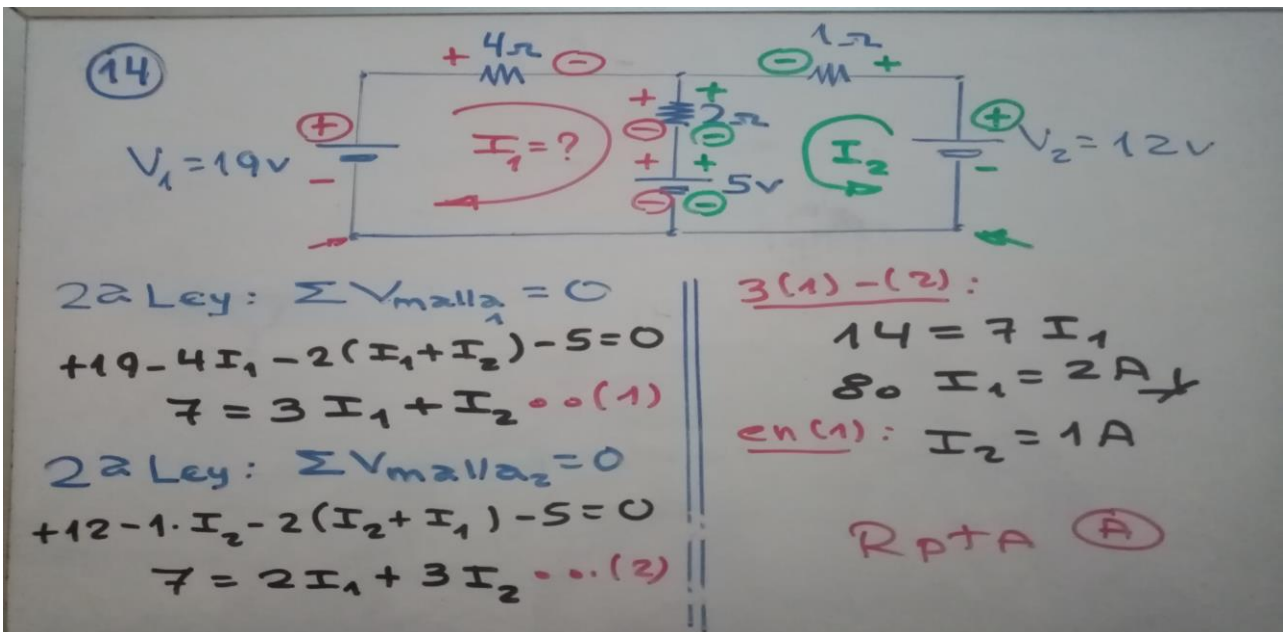 14
4Ω
1Ω
+ -
- +
+ +
2Ω
- -
+
-
V₁=19v
I₁=?
+ +
5v
- -
I₂
+
-
V₂=12v
2a Ley: ΣVmalla₁=0
+19-4I₁-2(I₁+I₂)-5=0
7=3I₁+I₂...(1)
2a Ley: ΣVmalla₂=0
+12-1.I₂-2(I₂+I₁)-5=0
7=2I₁+3I₂...(2)
3(1)-(2):
14=7I₁
I₁=2A
en(1): I₂=1A
Rpta A